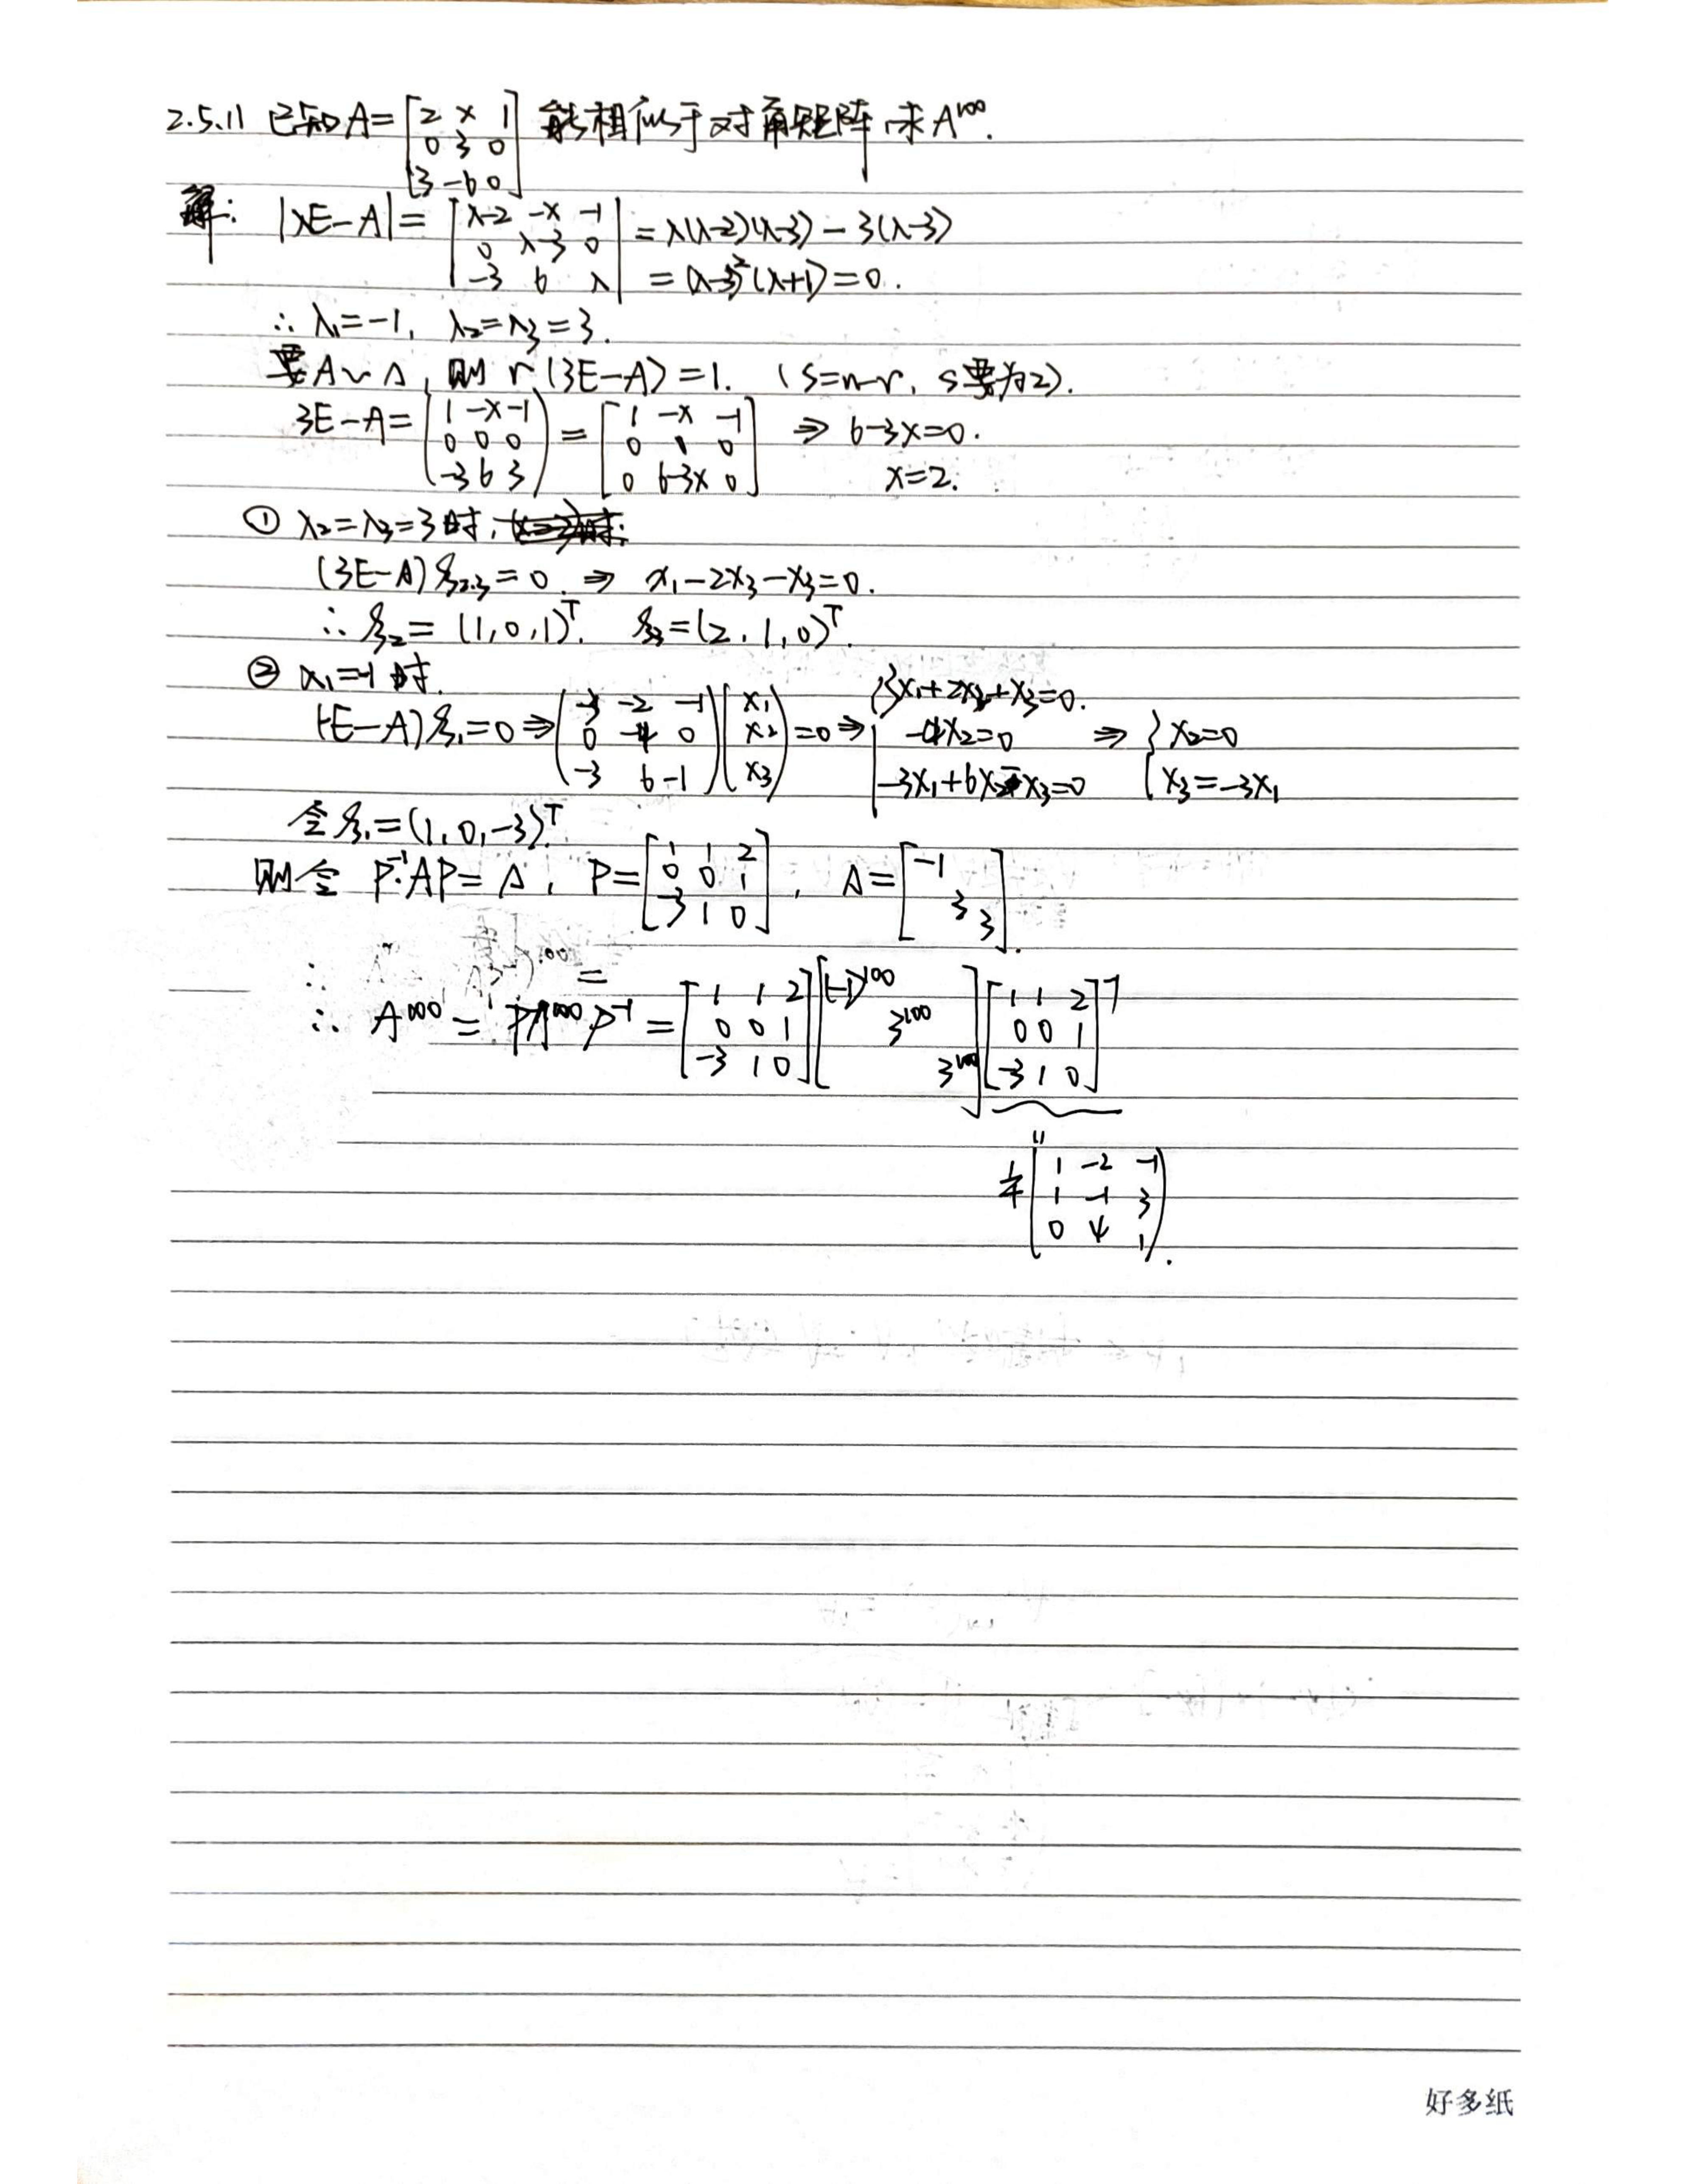 2.5.11 已知A=[2 x 1; 0 3 0; 3 -6 0] 能相似于对角矩阵,求A¹⁰⁰.
解: |λE-A|=|λ-2 -x -1; 0 λ-3 0; -3 6 λ| =λ(λ-2)(λ-3)-3(λ-3)
=(λ-3)²(λ+1)=0.
∴ λ₁=-1, λ₂=λ₃=3.
要A~Λ, 则 r(3E-A)=1. (s=n-r, s要为2).
3E-A=(1 -x -1; 0 0 0; -3 6 3)=[1 -x -1; 0 0 0; 0 6-3x 0] ⇒ 6-3x=0.
x=2.
① λ₂=λ₃=3时,
(3E-A)ξ₂,₃=0. ⇒ x₁-2x₃-x₃=0.
∴ξ₂=(1,0,1)ᵀ. ξ₃=(2,1,0)ᵀ.
② λ₁=-1时.
(-E-A)ξ₁=0⇒(-3 -2 -1; 0 -4 0; -3 6 -1)(x₁; x₂; x₃)=0⇒{3x₁+2x₂+x₃=0. -4x₂=0 -3x₁+6x₂-x₃=0 ⇒ {x₂=0 x₃=-3x₁
令ξ₁=(1,0,-3)ᵀ.
则令 P⁻¹AP=Λ, P=[1 1 2; 0 0 1; -3 1 0], Λ=[-1 3 3].
∴ A¹⁰⁰=PΛ¹⁰⁰P⁻¹=[1 1 2; 0 0 1; -3 1 0][(-1)¹⁰⁰ 3¹⁰⁰ 3¹⁰⁰][1 1 2; 0 0 1; -3 1 0]⁻¹
"
1/4(1 -2 -1; 1 -1 3; 0 4 1).
好多纸